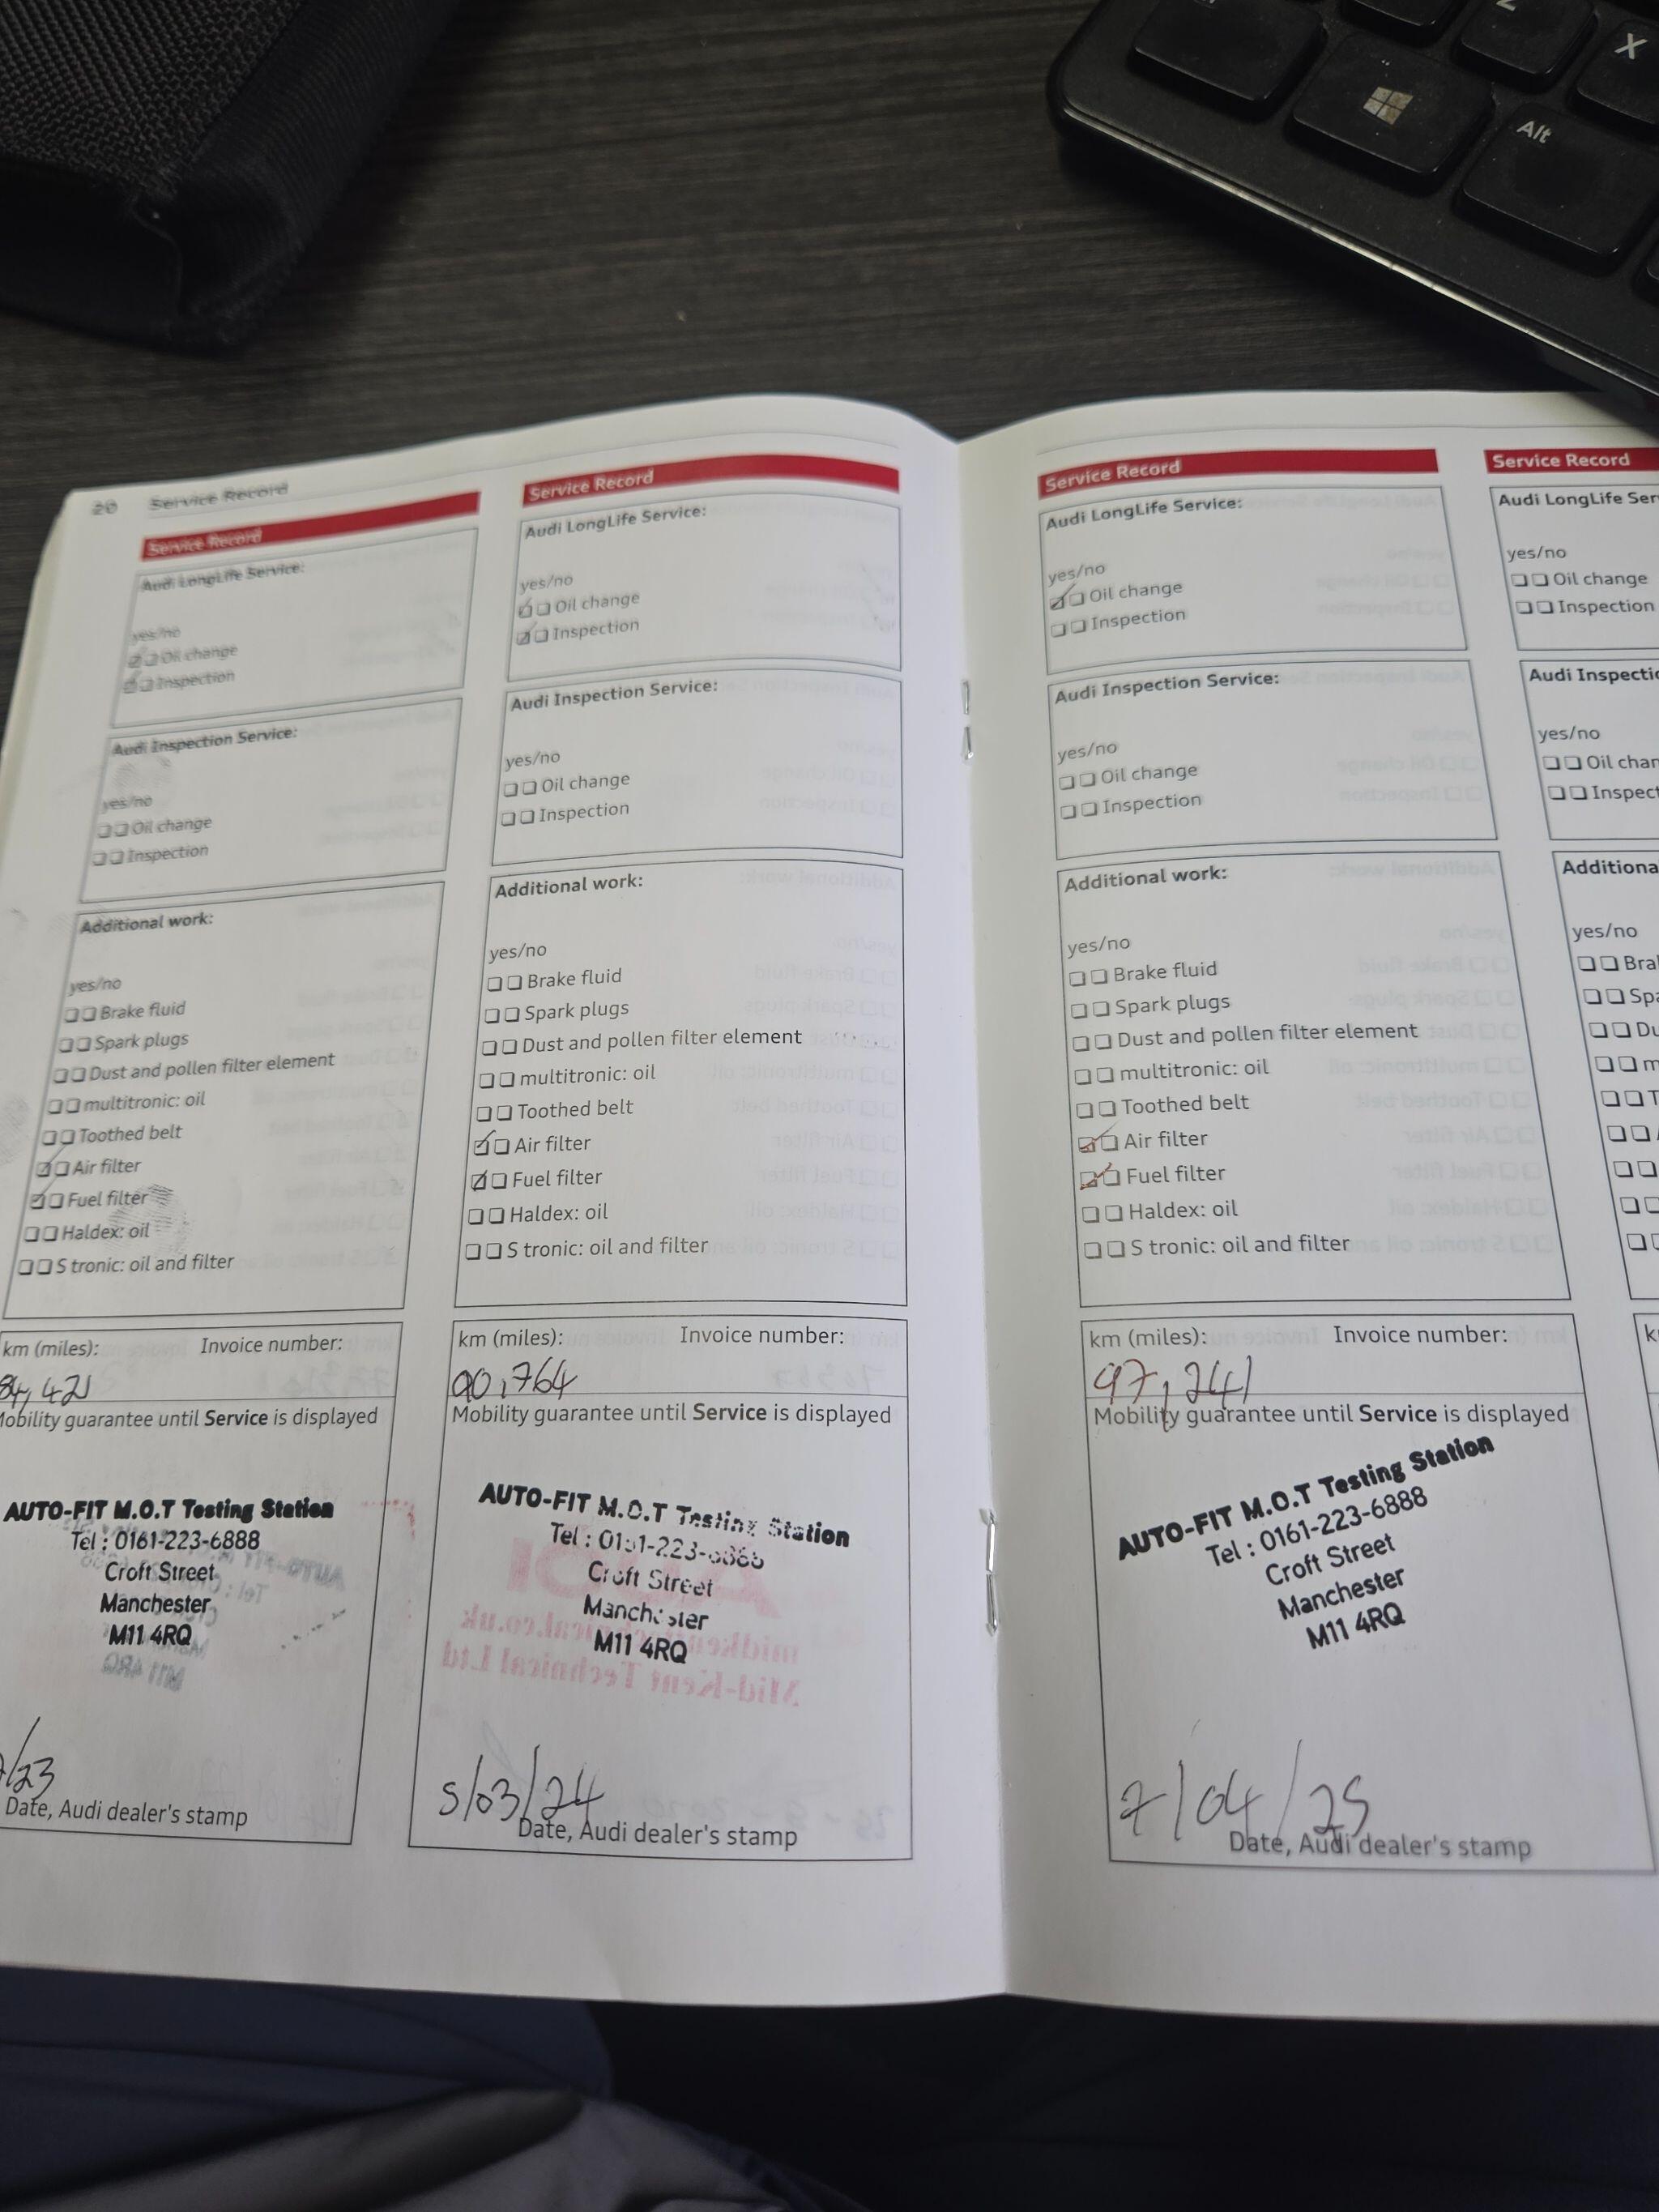 Z
X
Alt
20 Service Record
Service Record
Audi LongLife Service:
yes/no
Oil change
Inspection
Audi Inspection Service:
yes/no
Oil change
Inspection
Additional work:
yes/no
Brake fluid
Spark plugs
Dust and pollen filter element
multitronic: oil
Toothed belt
Air filter
Fuel filter
Haldex: oil
S tronic: oil and filter
km (miles): Invoice number:
84,421
Mobility guarantee until Service is displayed
AUTO-FIT M.O.T Testing Station
Tel : 0161-223-6888
Croft Street
Manchester
M11 4RQ
/23
Date, Audi dealer's stamp
Service Record
Audi LongLife Service:
yes/no
Oil change
Inspection
Audi Inspection Service:
yes/no
Oil change
Inspection
Additional work:
yes/no
Brake fluid
Spark plugs
Dust and pollen filter element
multitronic: oil
Toothed belt
Air filter
Fuel filter
Haldex: oil
S tronic: oil and filter
km (miles): Invoice number:
90,764
Mobility guarantee until Service is displayed
AUTO-FIT M.O.T Testing Station
Tel :
Croft Street
Manchester
M11 4RQ
5/03/24
Date, Audi dealer's stamp
Service Record
Audi LongLife Service:
yes/no
Oil change
Inspection
Audi Inspection Service:
yes/no
Oil change
Inspection
Additional work:
yes/no
Brake fluid
Spark plugs
Dust and pollen filter element
multitronic: oil
Toothed belt
Air filter
Fuel filter
Haldex: oil
S tronic: oil and filter
km (miles): Invoice number:
97,241
Mobility guarantee until Service is displayed
AUTO-FIT M.O.T Testing Station
Tel : 0161-223-6888
Croft Street
Manchester
M11 4RQ
7/04/25
Date, Audi dealer's stamp
Service Record
Audi LongLife Ser
yes/no
Oil change
Inspection
Audi Inspectio
yes/no
Oil chan
Inspect
Additiona
yes/no
Bra
Spa
Du
m
T